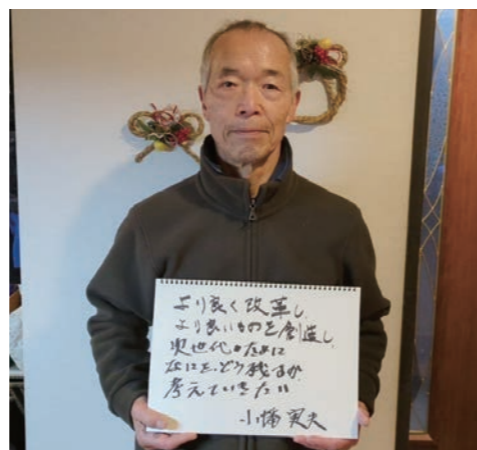 より良く改革し
より良いものを創造し
次世代のために
なにを、どう残すか
考えていきたい
小幡 実夫